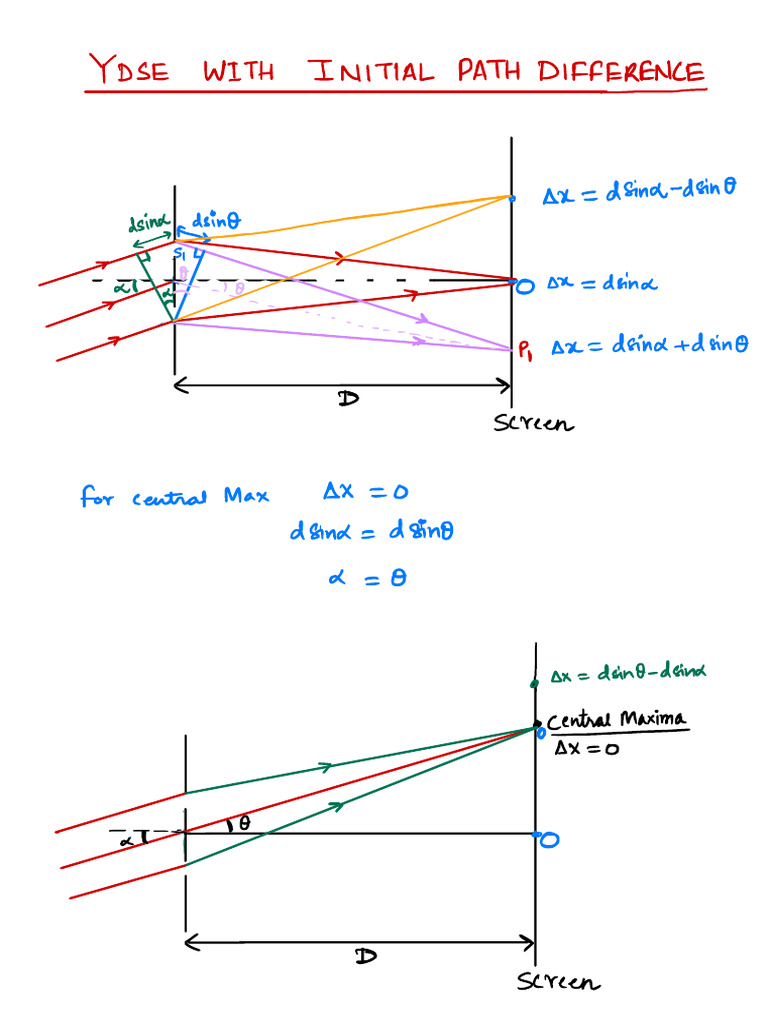 YDSE WITH INITIAL PATH DIFFERENCE
Δx = dsinα-dsinθ
dsinα
dsinθ
S1
θ
α
α
θ
O
Δx = dsinα
P1
Δx = dsinα+dsinθ
D
Screen
for central Max Δx = 0
dsinα = dsinθ
α = θ
Δx = dsinθ-dsinα
Central Maxima
Δx = 0
α
θ
O
D
Screen